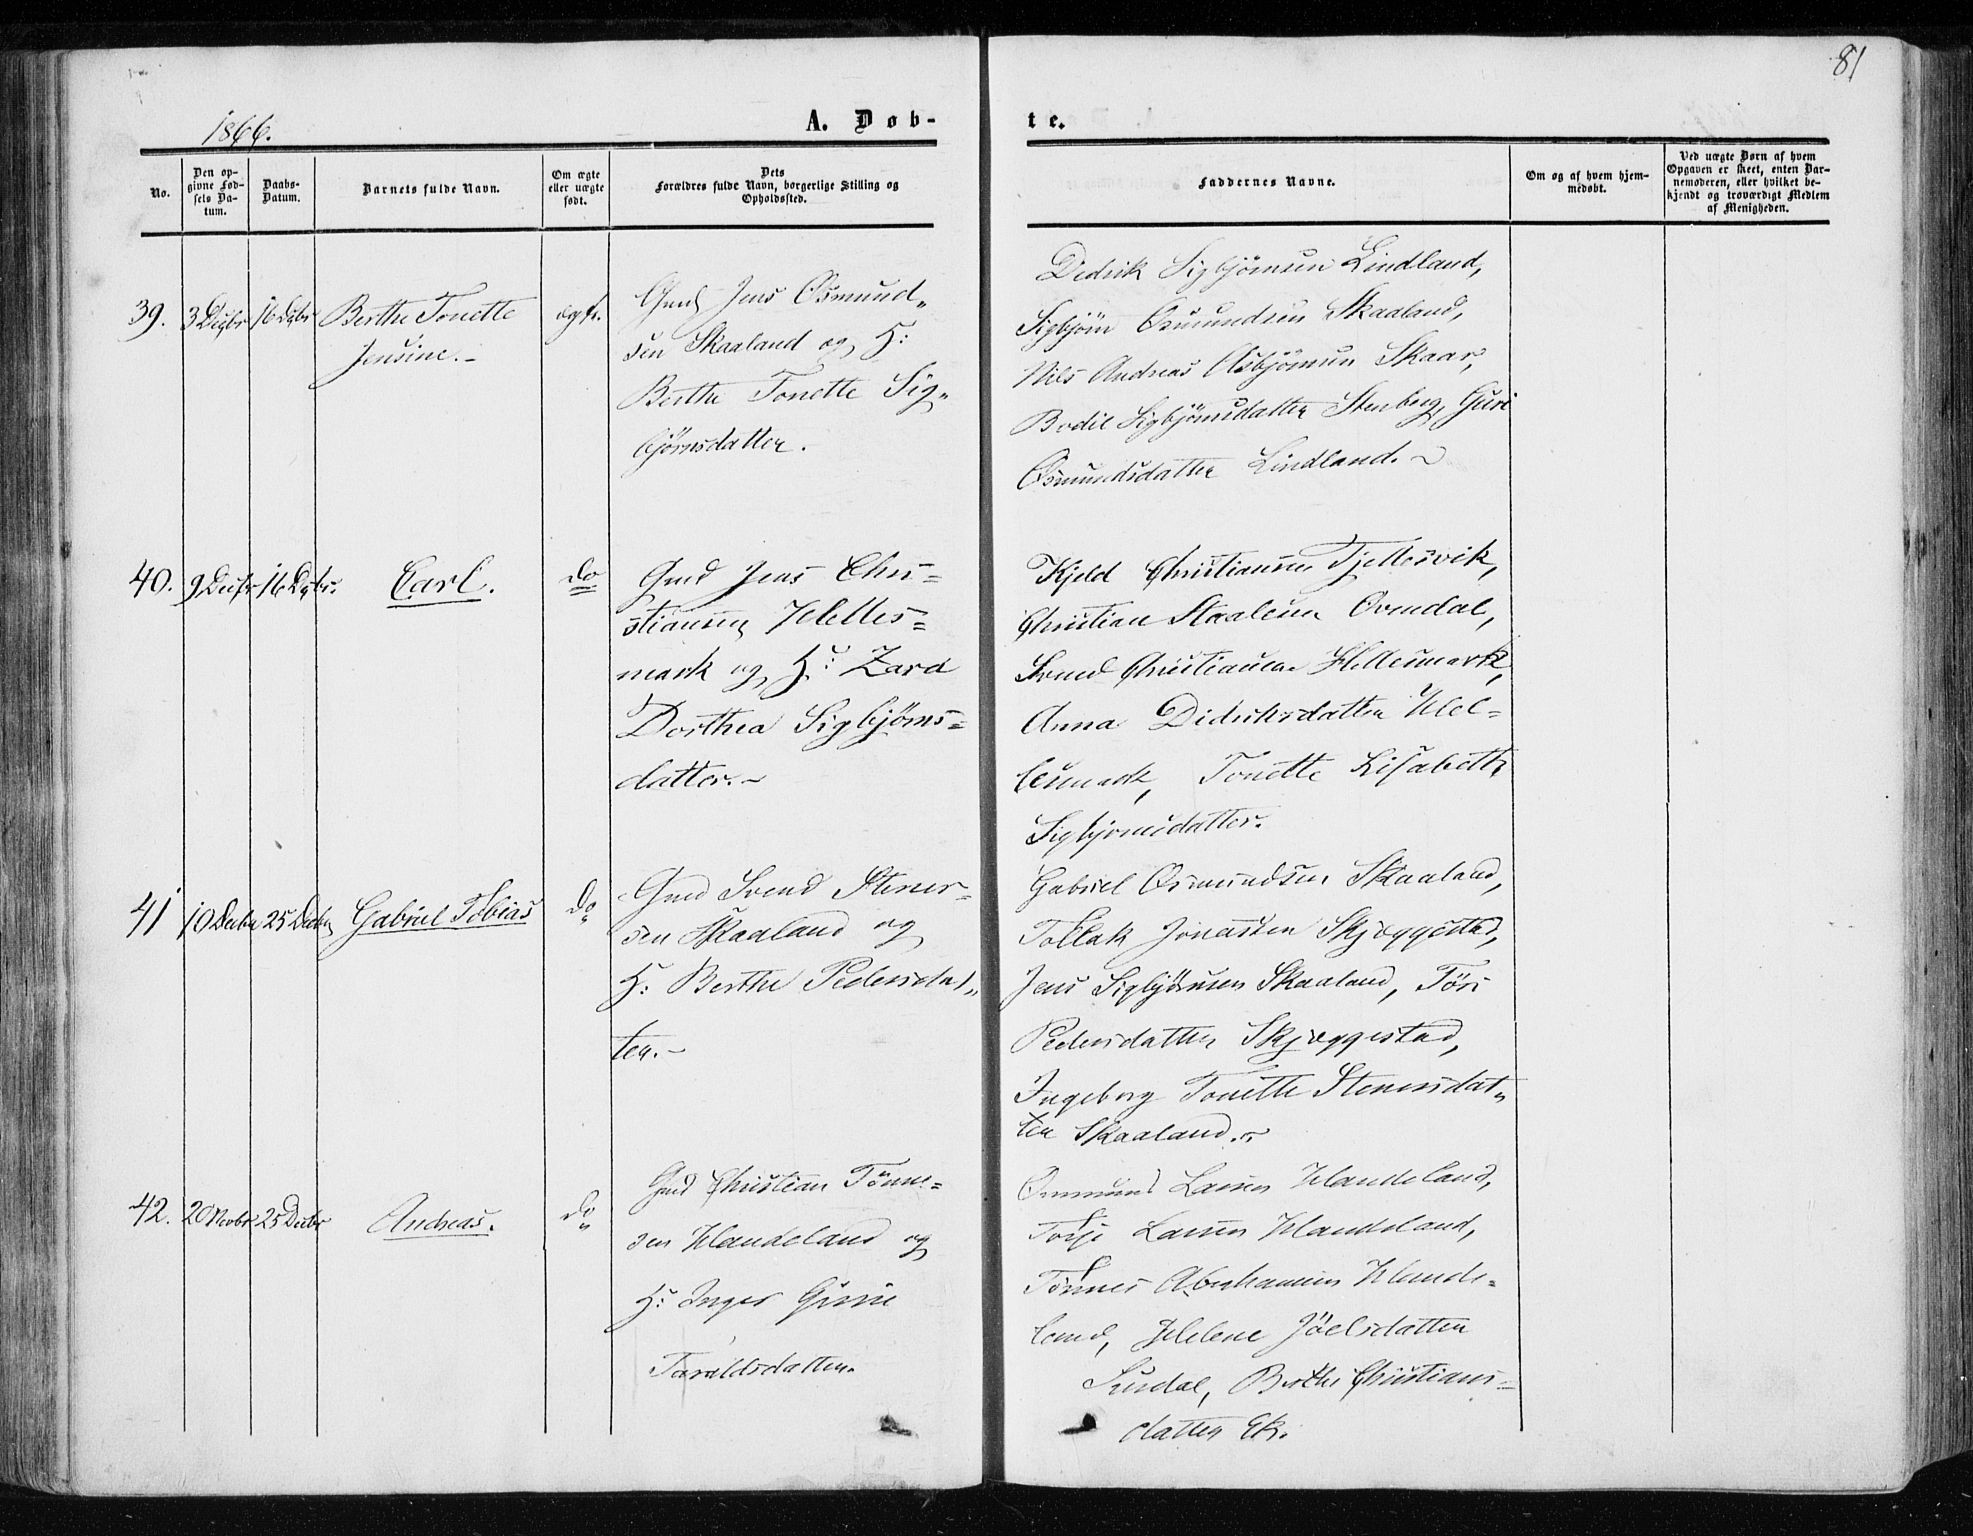 81
1866.
A. Døb-
te.
No.
Den op-
givne Fød-
sels Da-
tum.
Daabs-
Datum.
Barnets fulde Navn.
Om ægte
eller uægte
født.
Dets
Forældres fulde Navn, borgerlige Stilling og
Opholdssted.
Faddernes Navne.
Om og af hvem hjem-
medøbt.
Ved uægte Børn af hvem
Opgaven er skeet, enten Bar-
nemoderen, eller hvilket be-
kjendt og troværdigt Medlem
af Menigheden.
39.
3 Decbr
16 Dcbr
Berthe Tonette
Jensine.-
ægt.
Gmd Jens Osmund„
sen Skaaland og H:
Berthe Tonette Sig„
bjørnsdatter.
Didrik Sigbjörnsen Lindland,
Sigbjörn Osmundsen Skaaland,
Nils Andreas Asbjörnsen Skaar,
Bodil Sigbjörnsdatter Stenberg, Guri
Osmundsdatter Lindland.~
40.
9 Decbr
16 Dcbr.
Carl.
do
Gmd Jens Chri=
stiansen Helles=
mark og H: Zara
Dorthea Sigbjørns=
datter.~
Kjeld Christiansen Tjellesvik,
Christian Staalesen Ovendal,
Svend Christiansen Hellesmark,
Anna Didriksdatter Hel=
lesmark, Tonette Lisabeth
Sigbjörnsdatter.
41
10 Decbr
25 Decbr
Gabriel Tobias
do
Gmd Svend Stener-
sen Skaaland og
H: Berthe Pedersdat„
ter.~
Gabriel Osmundsen Skaaland,
Tollak Jonassen Skjæggestad,
Jens Sigbjörnsen Skaaland, Töri
Pedersdatter Skjæggestad,
Ingeborg Tonette Stenersdat„
ter Skaaland.~
42.
20 Novbr
25 Decbr
Andreas.
do
Gmd Christian Tönne=
sen Handeland og
H: Inger Gurine
Taraldsdatter.
Ommund Larsen Handeland,
Torje Larsen Handeland,
Tönnes Abrahamsen Hande=
land, Helene Jöelsdatter
Surdal, Berthe Christians=
datter Ek.